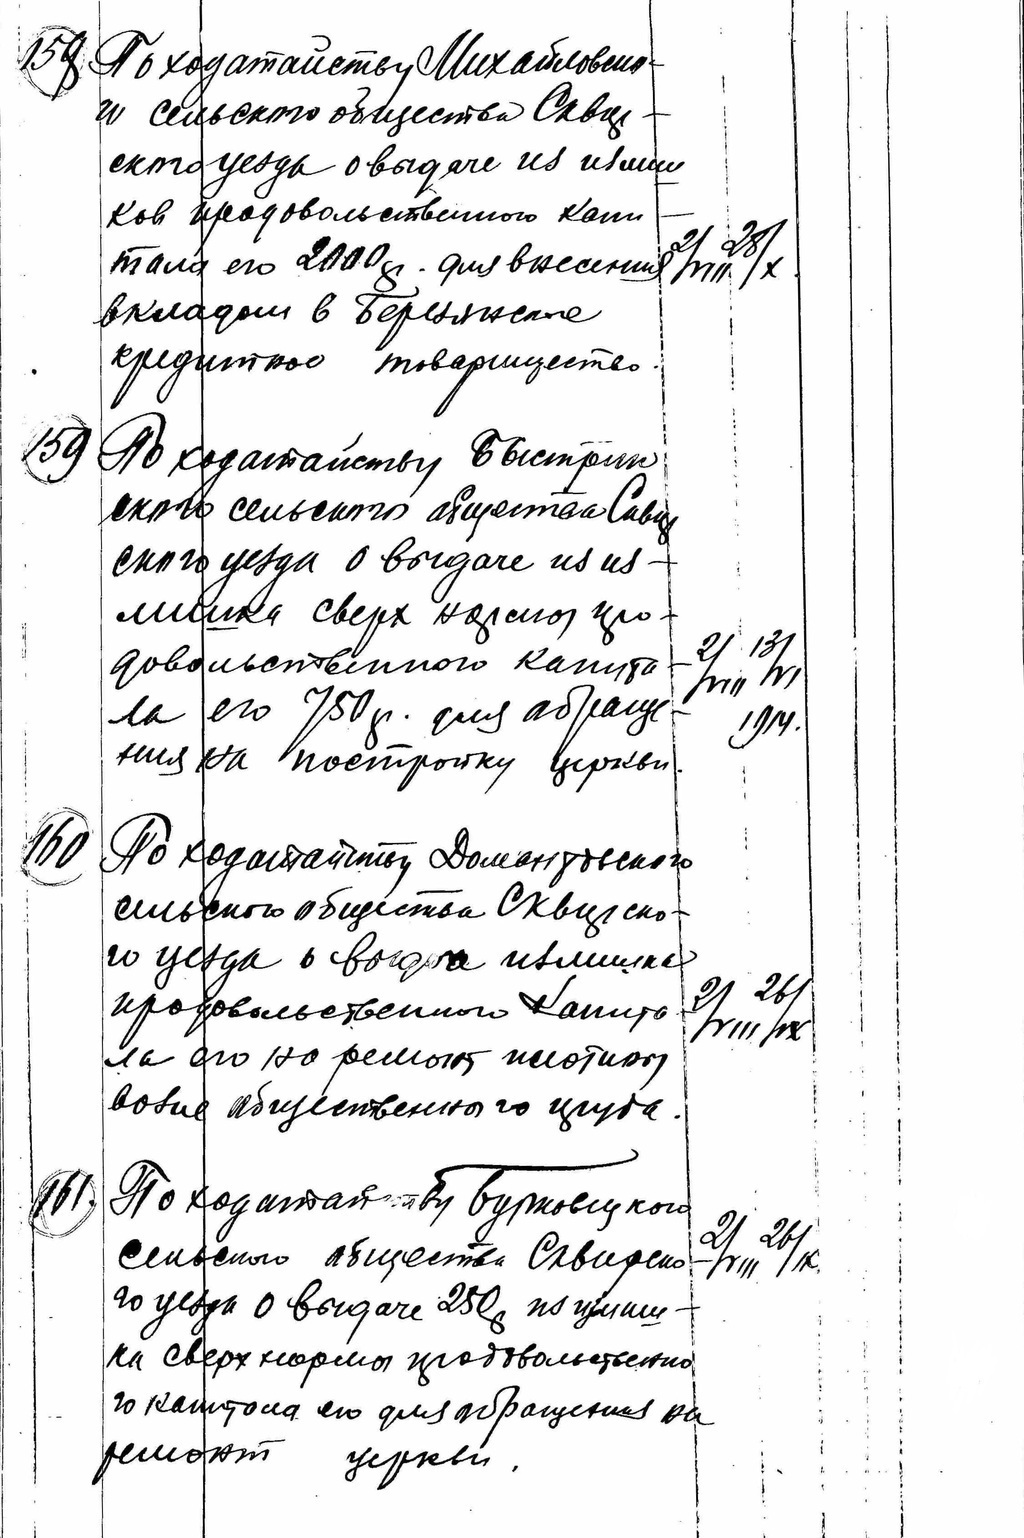 159 По ходатайству Михайловско-
го сельского общества Сквир-
ского уезда о выдаче из излиш
ков продовольственного капи-
тала его 2000 р. для внесения 2/VIII 28/X.
вкладом в Березянское
кредитное товарищество.
159 По ходатайству Быстрии
ского сельского общества Сквир
ского уезда о выдаче из из-
лишка сверх нормы про-
довольственного капита- 2/VIII 13/VI
ла его 750 р. для обраще- 1914.
ния на постройку церкви.
160 По ходатайству Домантовского
сельского общества Сквирско-
го уезда о выдаче излишка
продовольственного капита- 2/VIII 26/IX
ла его на ремонт плотины
возле общественного пруда.
161. По ходатайству Бурковецкого
сельского общества Сквирско- 2/VIII 26/IX.
го уезда о выдаче 250 р из излиш-
ка сверх нормы продовольственно
го капитала его для обращения на
ремонт церкви.